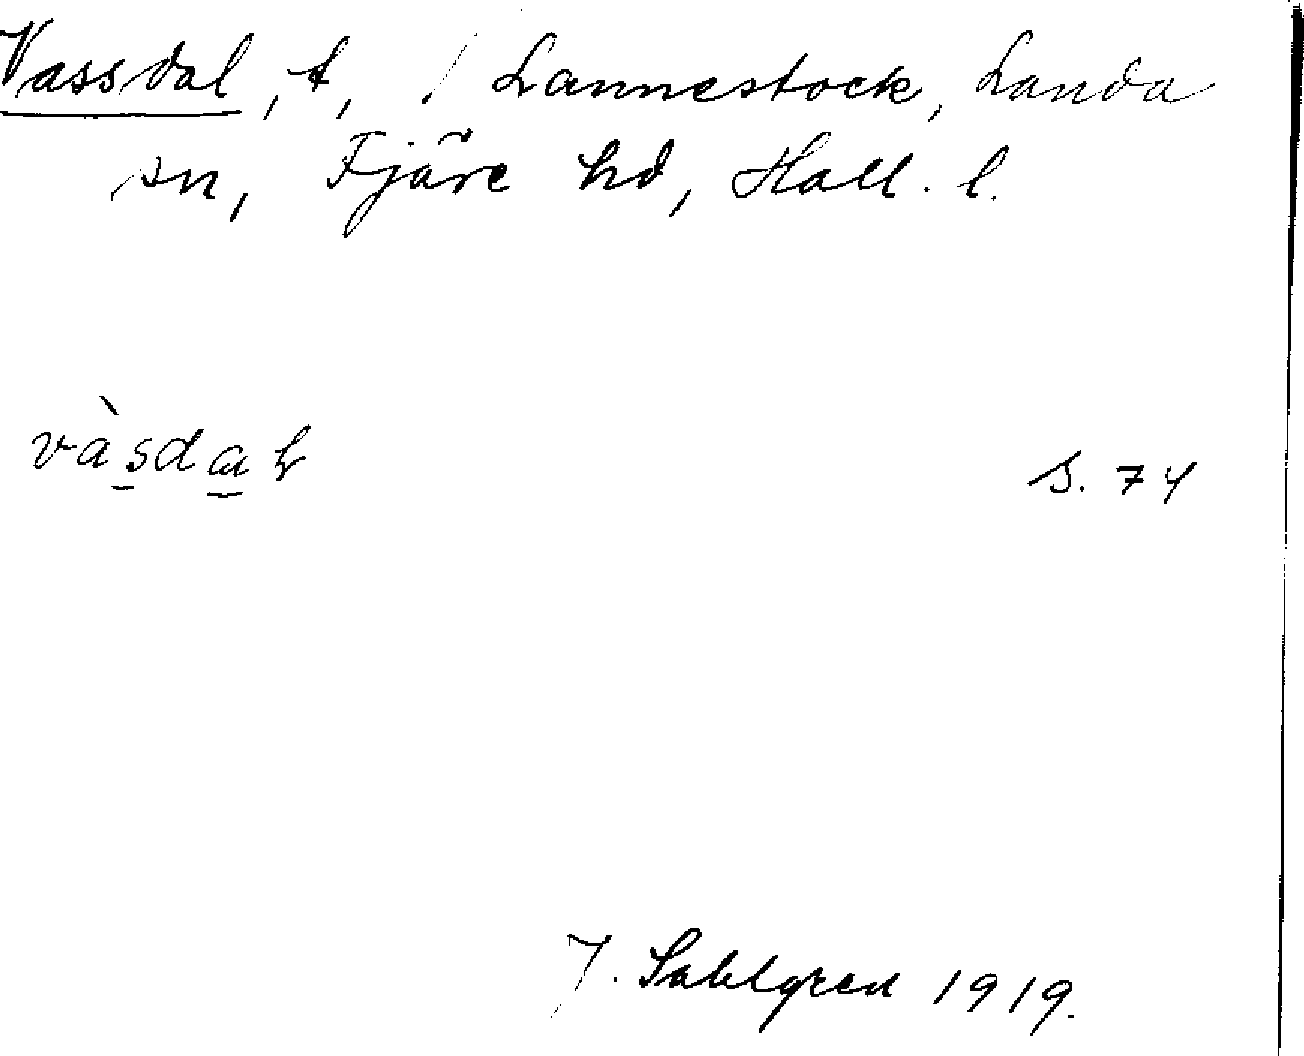 Vassdal, t, / Lannestock, Landa
sn, Fjäre hd, Hall. l.
vàsdaɫ
s. 74
J. Sahlgren 1919.